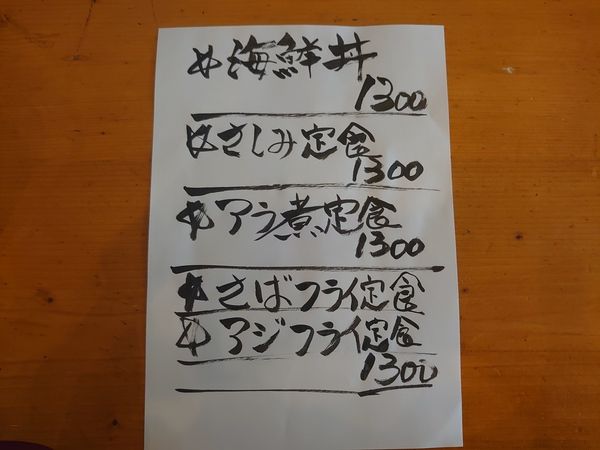 海鮮丼
1300
さしみ定食
1300
アラ煮定食
1300
さばフライ定食
アジフライ定食
1300